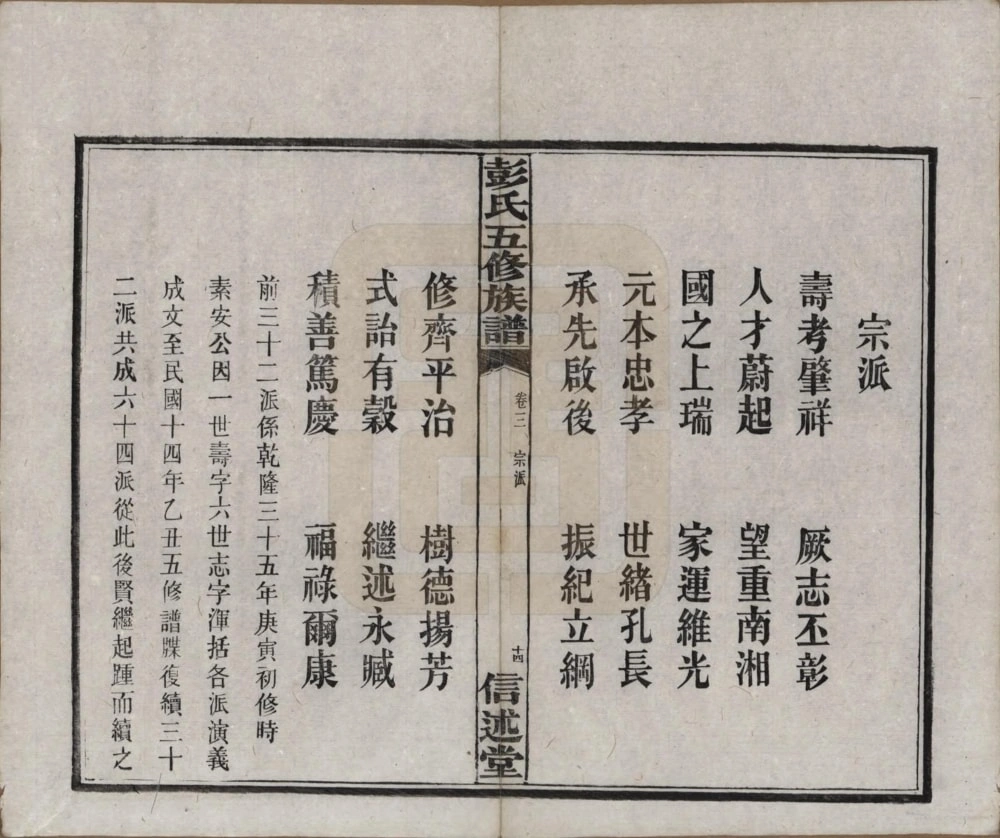 宗派
壽考肇祥 厥志丕彰
人才蔚起 望重南湘
國之上瑞 家運維光
元本忠孝 世緒孔長
承先啟後 振紀立綱
彭氏五修族譜 卷三 宗派 十四 信述堂
修齊平治 樹德揚芳
式詒有穀 繼述永臧
積善篤慶 福祿爾康
前三十二派係乾隆三十五年庚寅初修時
素安公因一世壽字六世志字渾括各派演義
成文至民國十四年乙丑五修譜牒復續三十
二派共成六十四派從此後賢繼起踵而續之